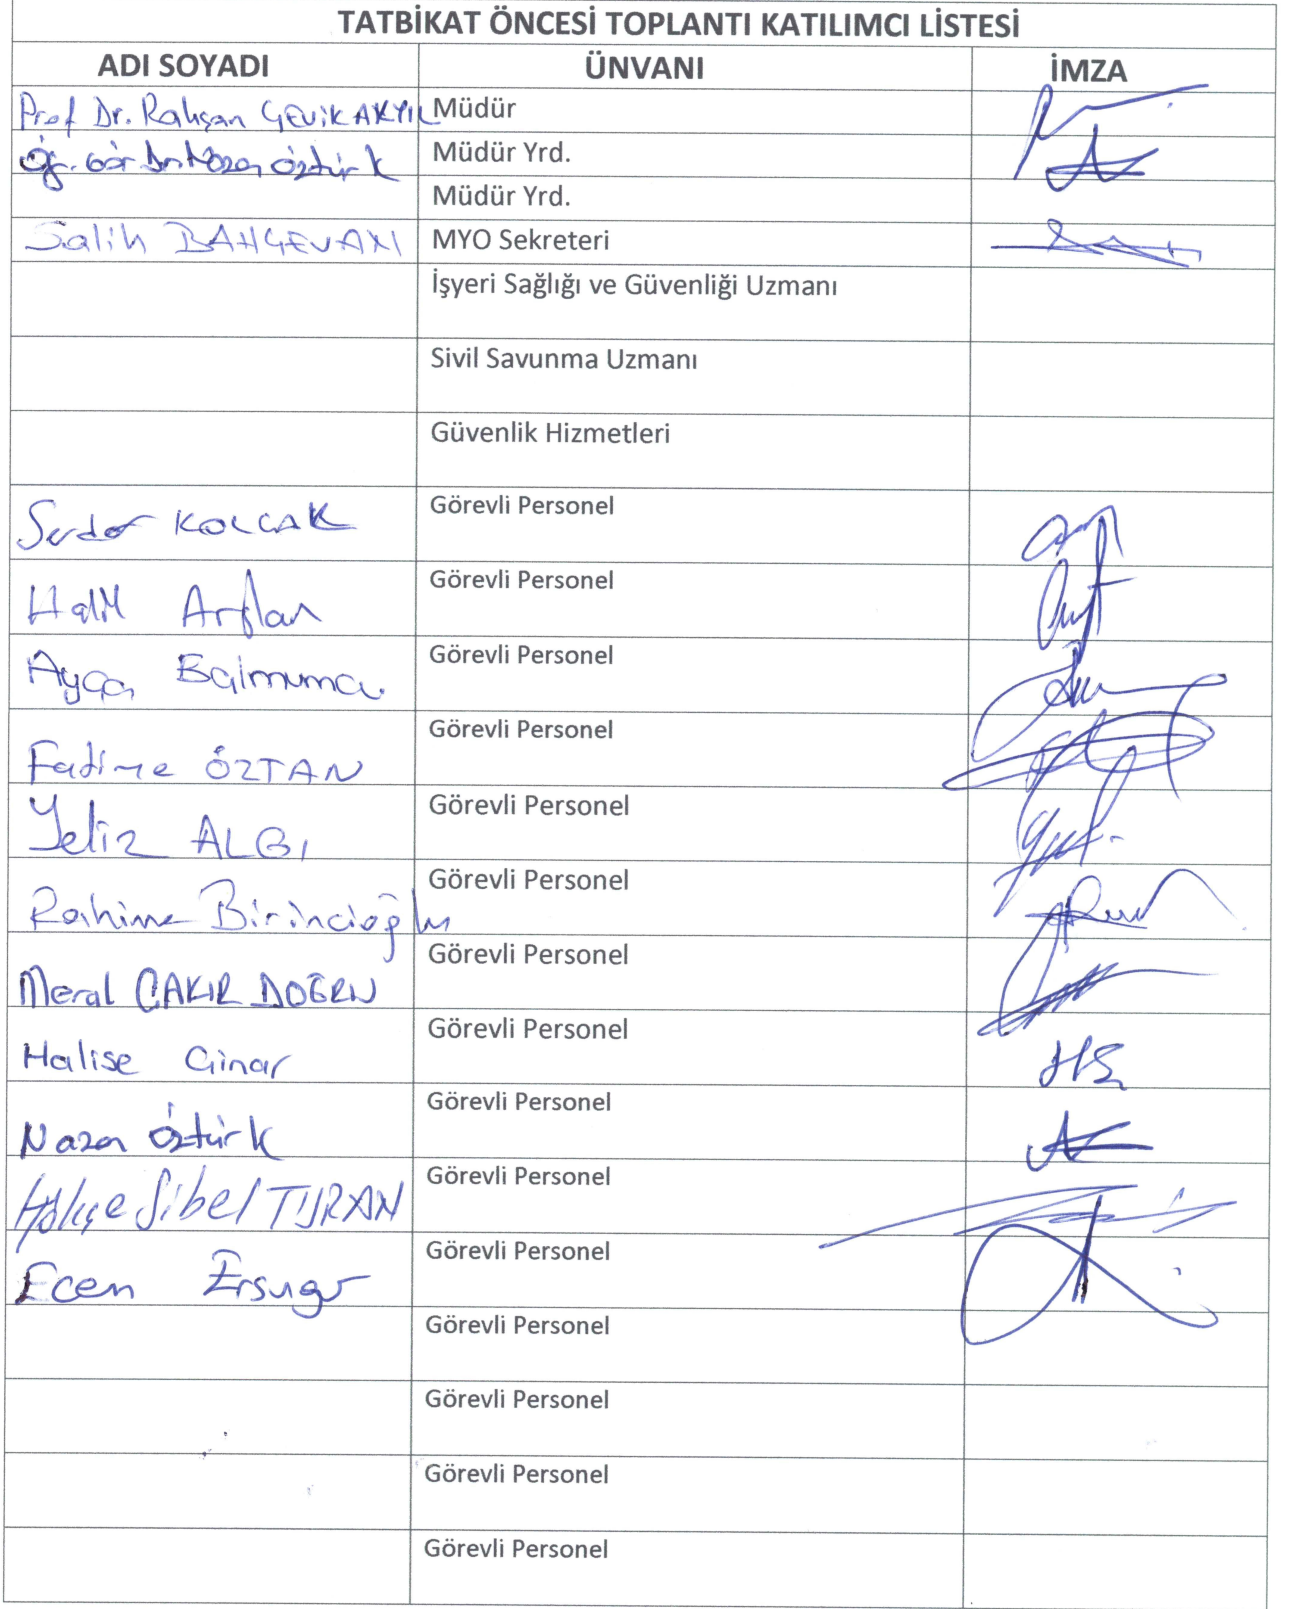 TATBİKAT ÖNCESİ TOPLANTI KATILIMCI LİSTESİ
ADI SOYADI ÜNVANI İMZA
Prof Dr. Rahşan ÇEVİK AKYIL Müdür
Öğr. Gör Dr. Nazan Öztürk Müdür Yrd.
Müdür Yrd.
Salih BAHÇEVAN MYO Sekreteri
İşyeri Sağlığı ve Güvenliği Uzmanı
Sivil Savunma Uzmanı
Güvenlik Hizmetleri
Serdar KOLÇAK Görevli Personel
Halil Arslan Görevli Personel
Ayça Balmumcu Görevli Personel
Fadime ÖZTAN Görevli Personel
Yeliz ALGI Görevli Personel
Rahime Birincioğlu Görevli Personel
Meral ÇAKIR DOĞRU Görevli Personel
Halise Çinar Görevli Personel
Nazan Öztürk Görevli Personel
Sibel TURAN Görevli Personel
Ecem Görevli Personel
Görevli Personel
Görevli Personel
Görevli Personel
Görevli Personel